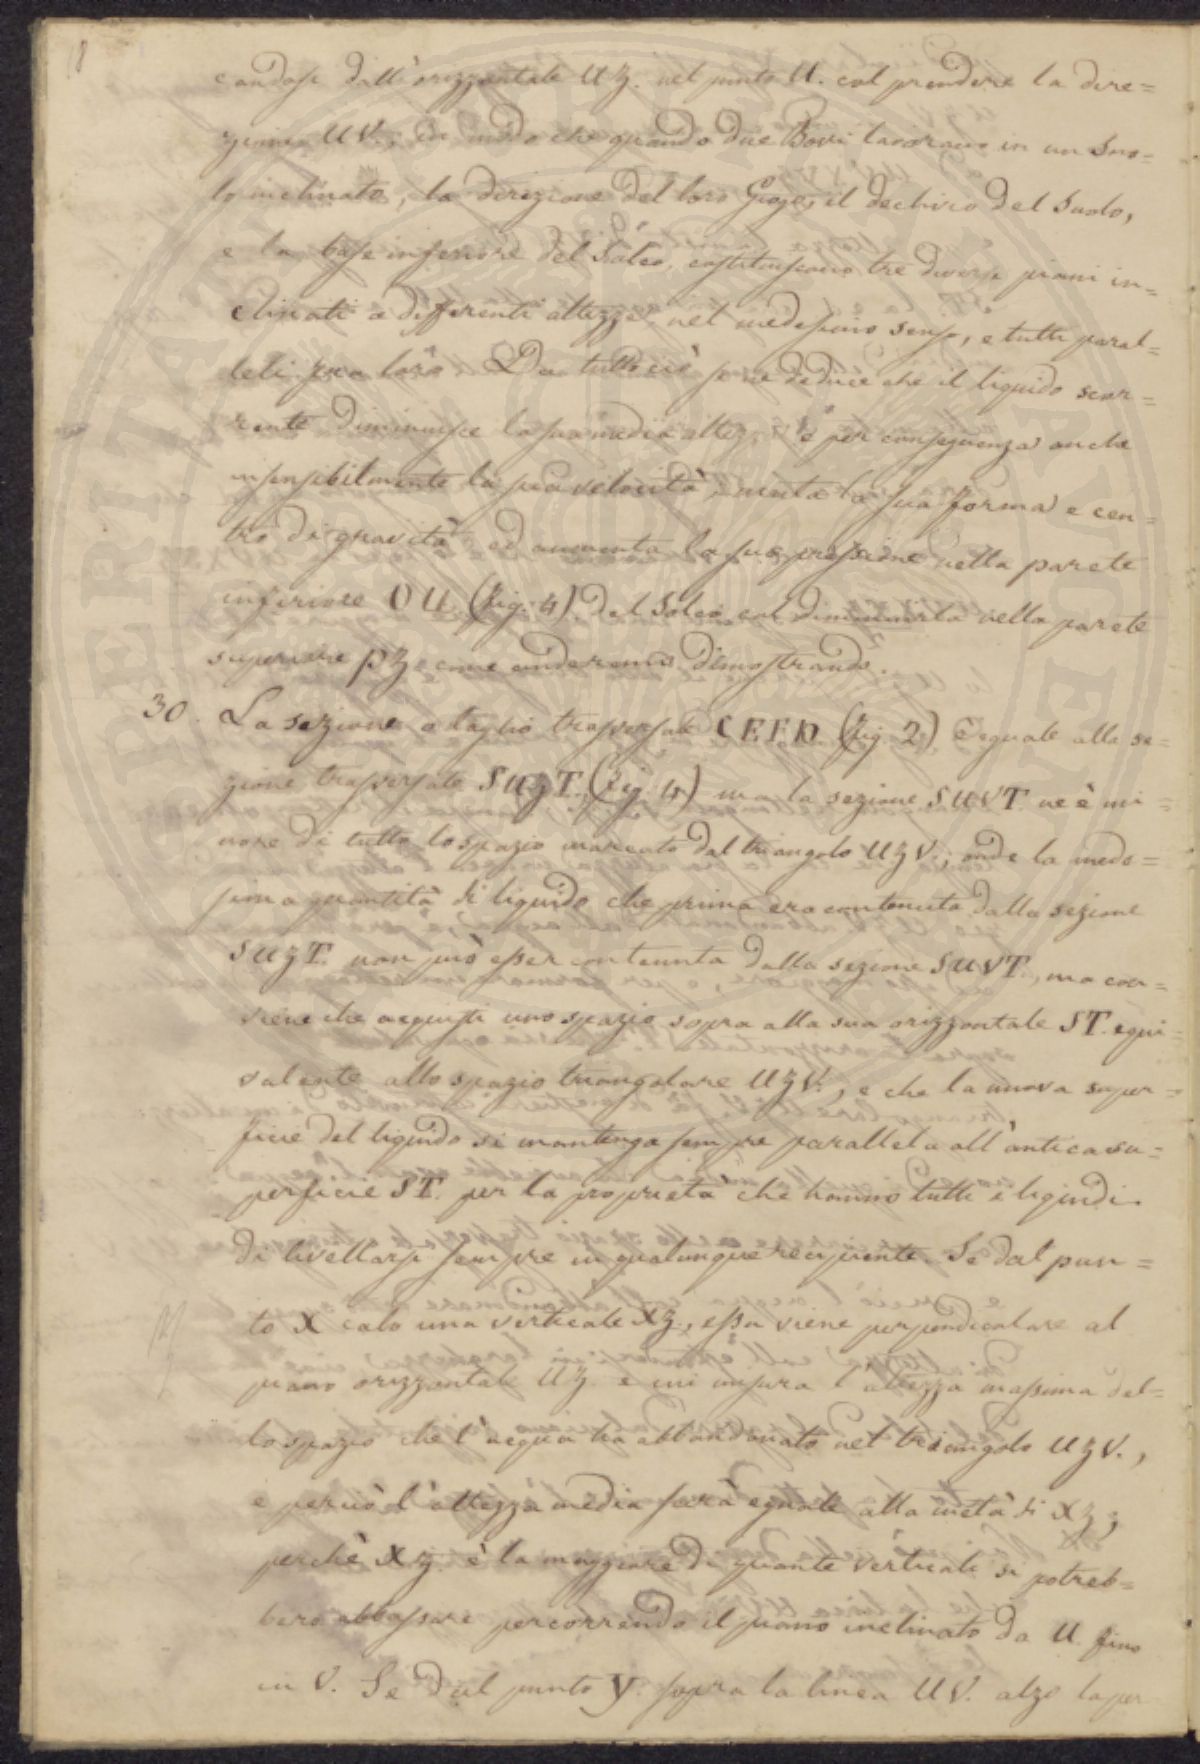 18
candosi dall'orizzontale UZ. nel punto U. col prendere la dire=
zione UV.; in modo che quando due Bovi lavorano in un Suo=
lo inclinato, la direzione del loro Giogo, il declivio del Suolo,
e la base inferiore del Solco, costituiscono tre diversi piani in=
clinati a differenti altezze nel medesimo senso, e tutti paral=
leli fra loro. Da tutto ciò se ne deduce che il liquido scor=
rente diminuisce la sua media altezza e per conseguenza anche
insensibilmente la sua velocità, muta la sua forma e cen=
tro di gravità ed aumenta la sua pressione nella parete
inferiore OU (Fig. 4) del Solco col diminuirla nella parete
superiore PZ come anderemo dimostrando.
30. La sezione o taglio trasversale CEFD (Fig. 2) è eguale alla se=
zione trasversale SUZT. (Fig. 4) ma la sezione SUVT. ne è mi=
nore di tutto lo spazio marcato dal triangolo UZV.; onde la mede=
sima quantità di liquido che prima era contenuta dalla sezione
SUZT. non può esser contenuta dalla sezione SUVT., ma con=
viene che acquisti uno spazio sopra alla sua orizzontale ST. equi=
valente allo spazio triangolare UZV., e che la nuova super=
ficie del liquido si mantenga sempre parallela all'antica su=
perficie ST. per la proprietà che hanno tutti i liquidi
di livellarsi sempre in qualunque recipiente. Se dal pun=
to X calo una verticale XZ., essa viene perpendicolare al
piano orizzontale UZ e mi misura l'altezza massima del=
lo spazio che l'acqua ha abbandonato nel triangolo UZV.,
e perciò l'altezza media sarà eguale alla metà di XZ;
perchè XZ. è la maggiore di quante verticali si potreb=
bero abbassare percorrendo il piano inclinato da U fino
in V. Se dal punto Y. sopra la linea UV. alzo la per